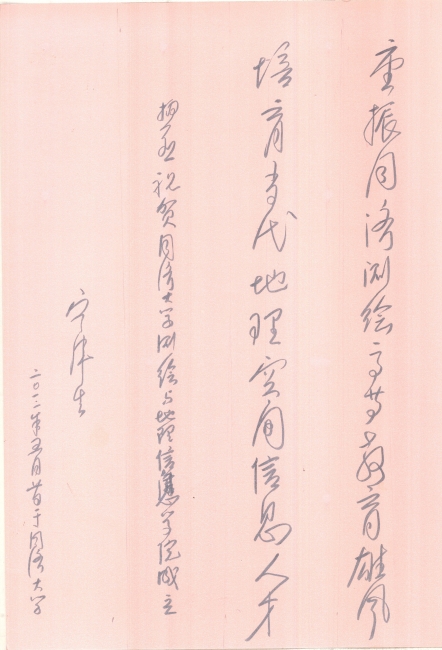 重振同济测绘高等教育雄风
培育当代地理空间信息人才
祝贺同济大学测绘与地理信息学院成立
宁津生
二〇一二年五月 于同济大学